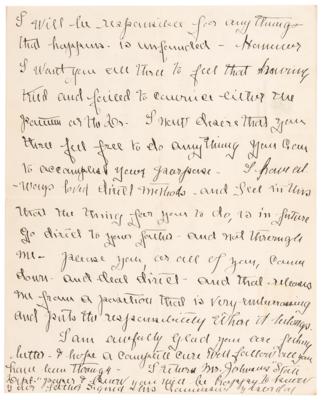 I will be responsible for anything
that happens is unfounded - However
I want you all three to feel that having
tried and failed to convince either the
or the Dr. I want desire that you
three feel free to do anything you can
to accomplish your purpose. I have al-
ways loved direct methods - and feel in this
that the thing for you to do, is in future
go direct to your father - and not through
me - please you, or all of you, come
down - and deal direct - and that releases
me from a position that is very embarrassing
and puts the responsibility where it belongs.
I am awfully glad you are feeling
better - & hope a complete cure will follow all you
have been through - I return Mr. Johnsons
Dept. paper & know you will be happy to know
your Father signed this yesterday